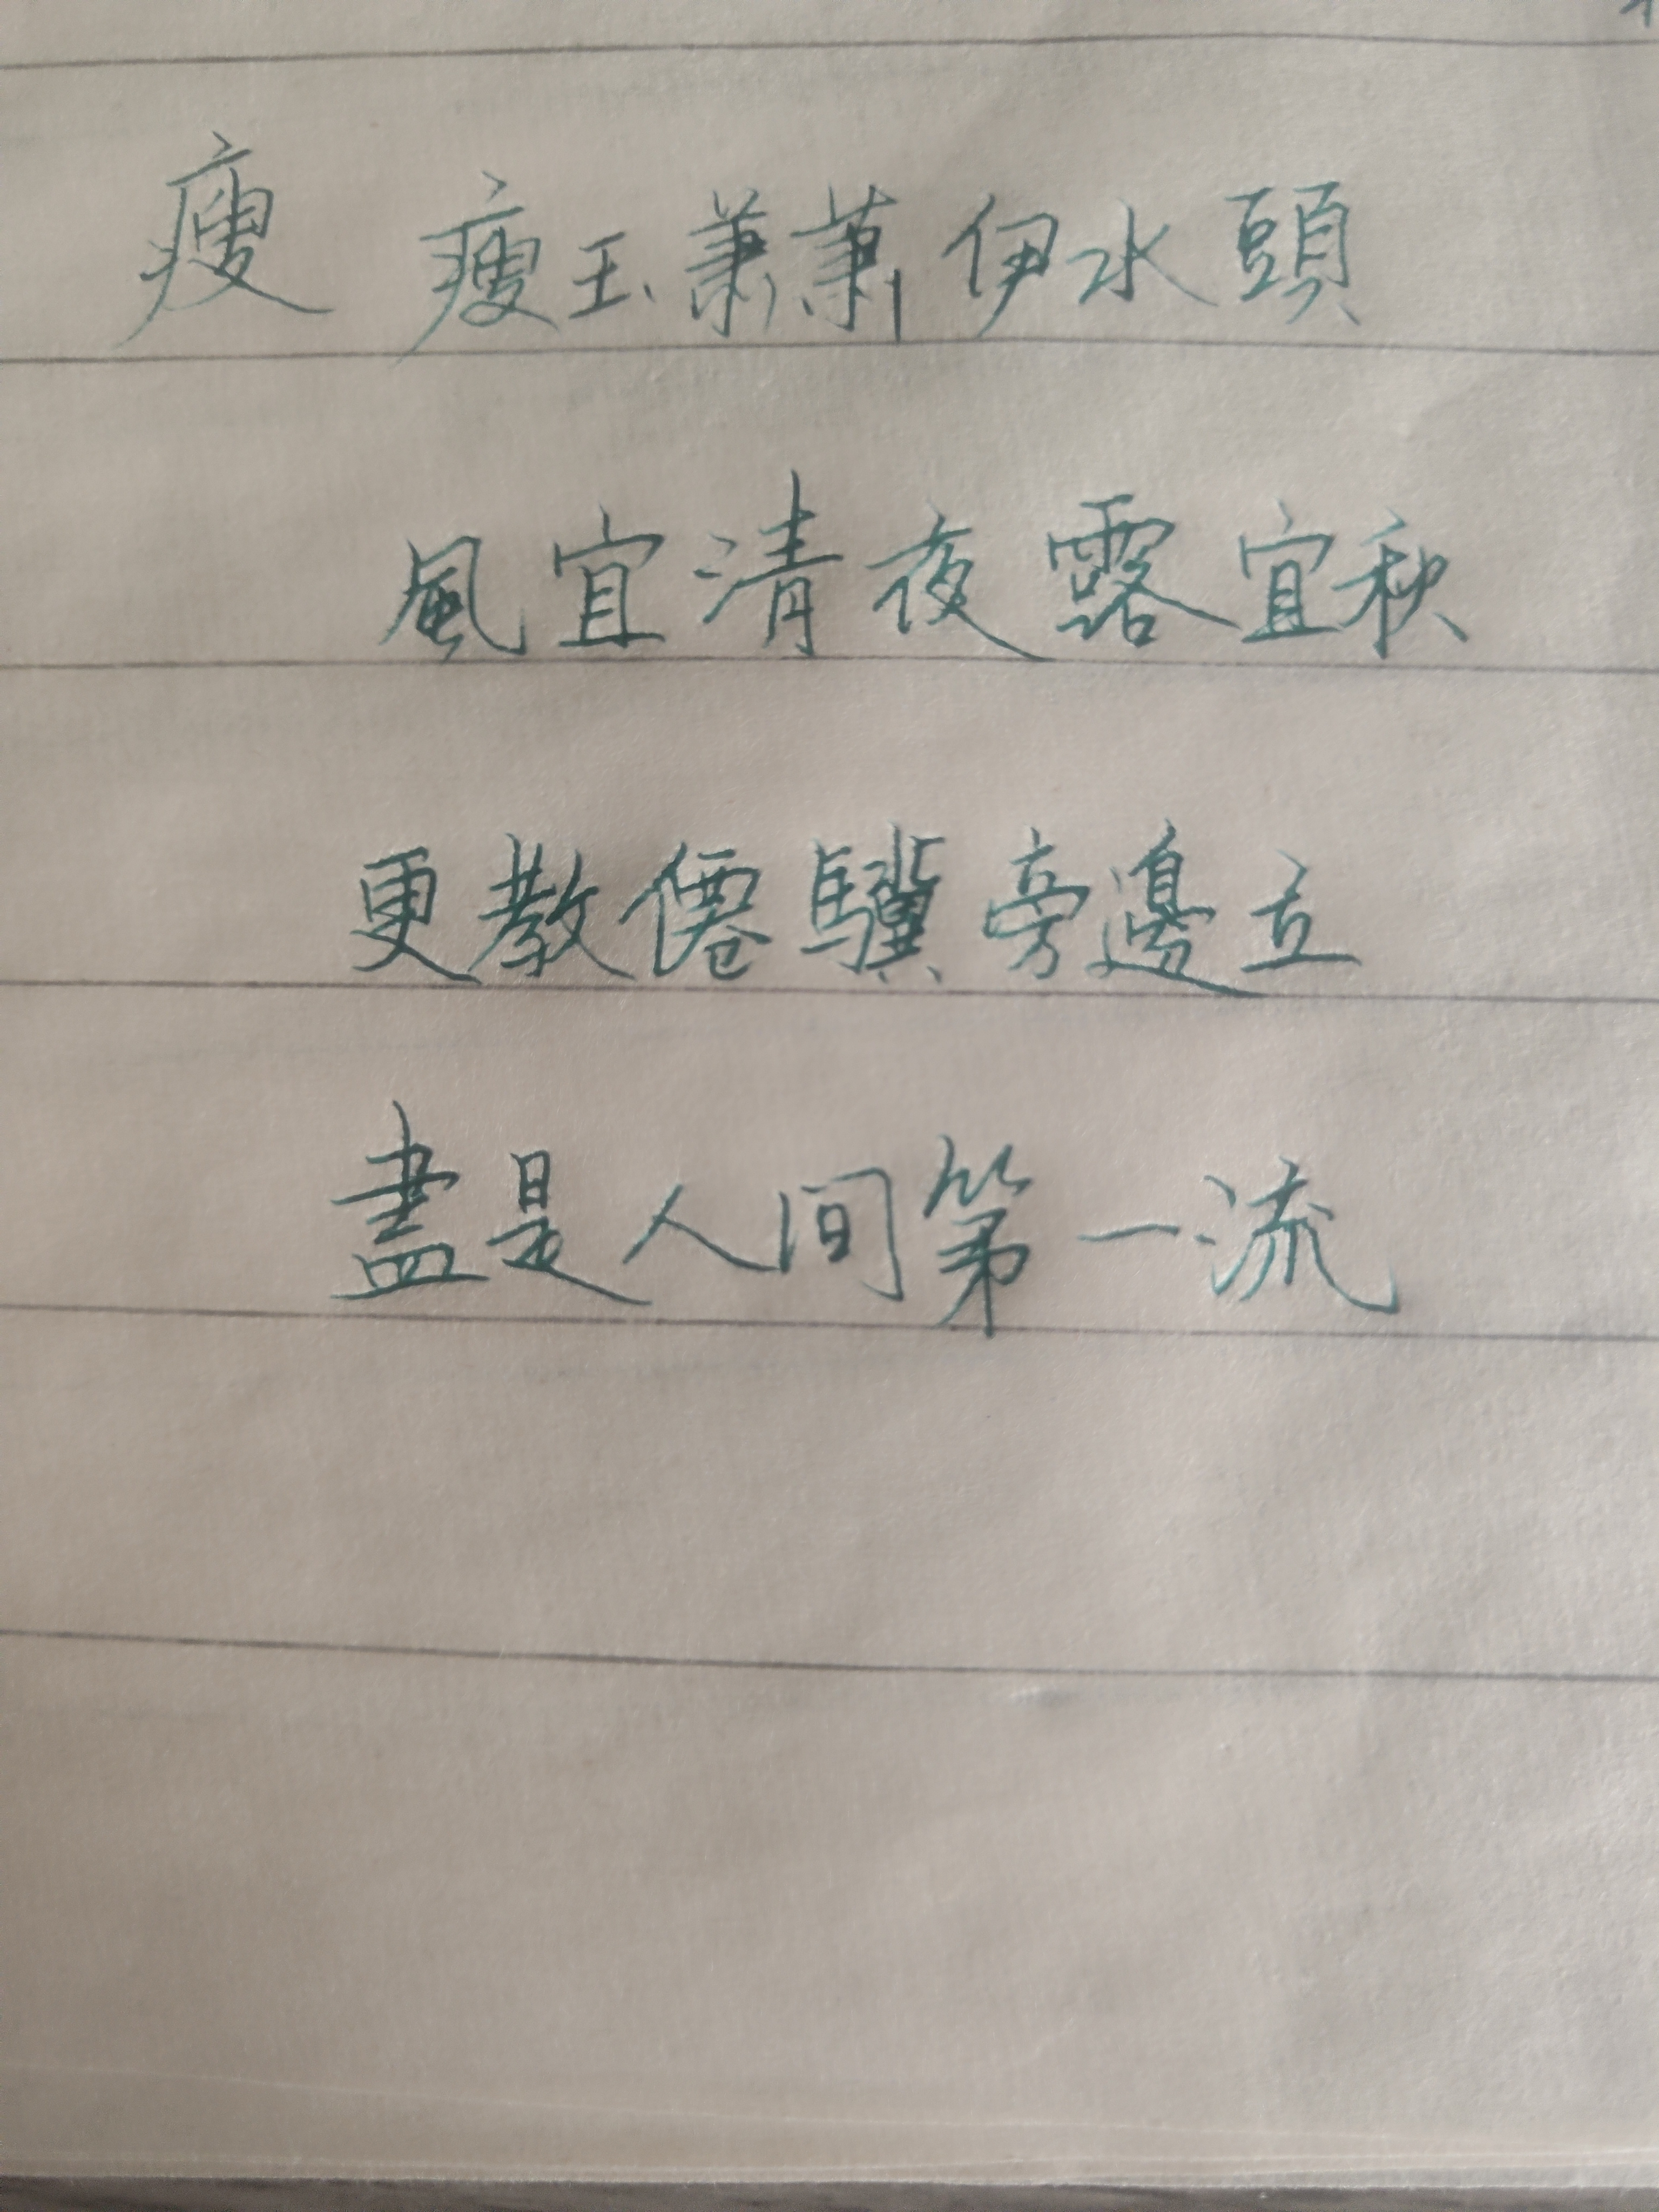 瘦 瘦玉蕭蕭伊水頭
風宜清夜露宜秋
更教僊驥旁邊立
盡是人间第一流